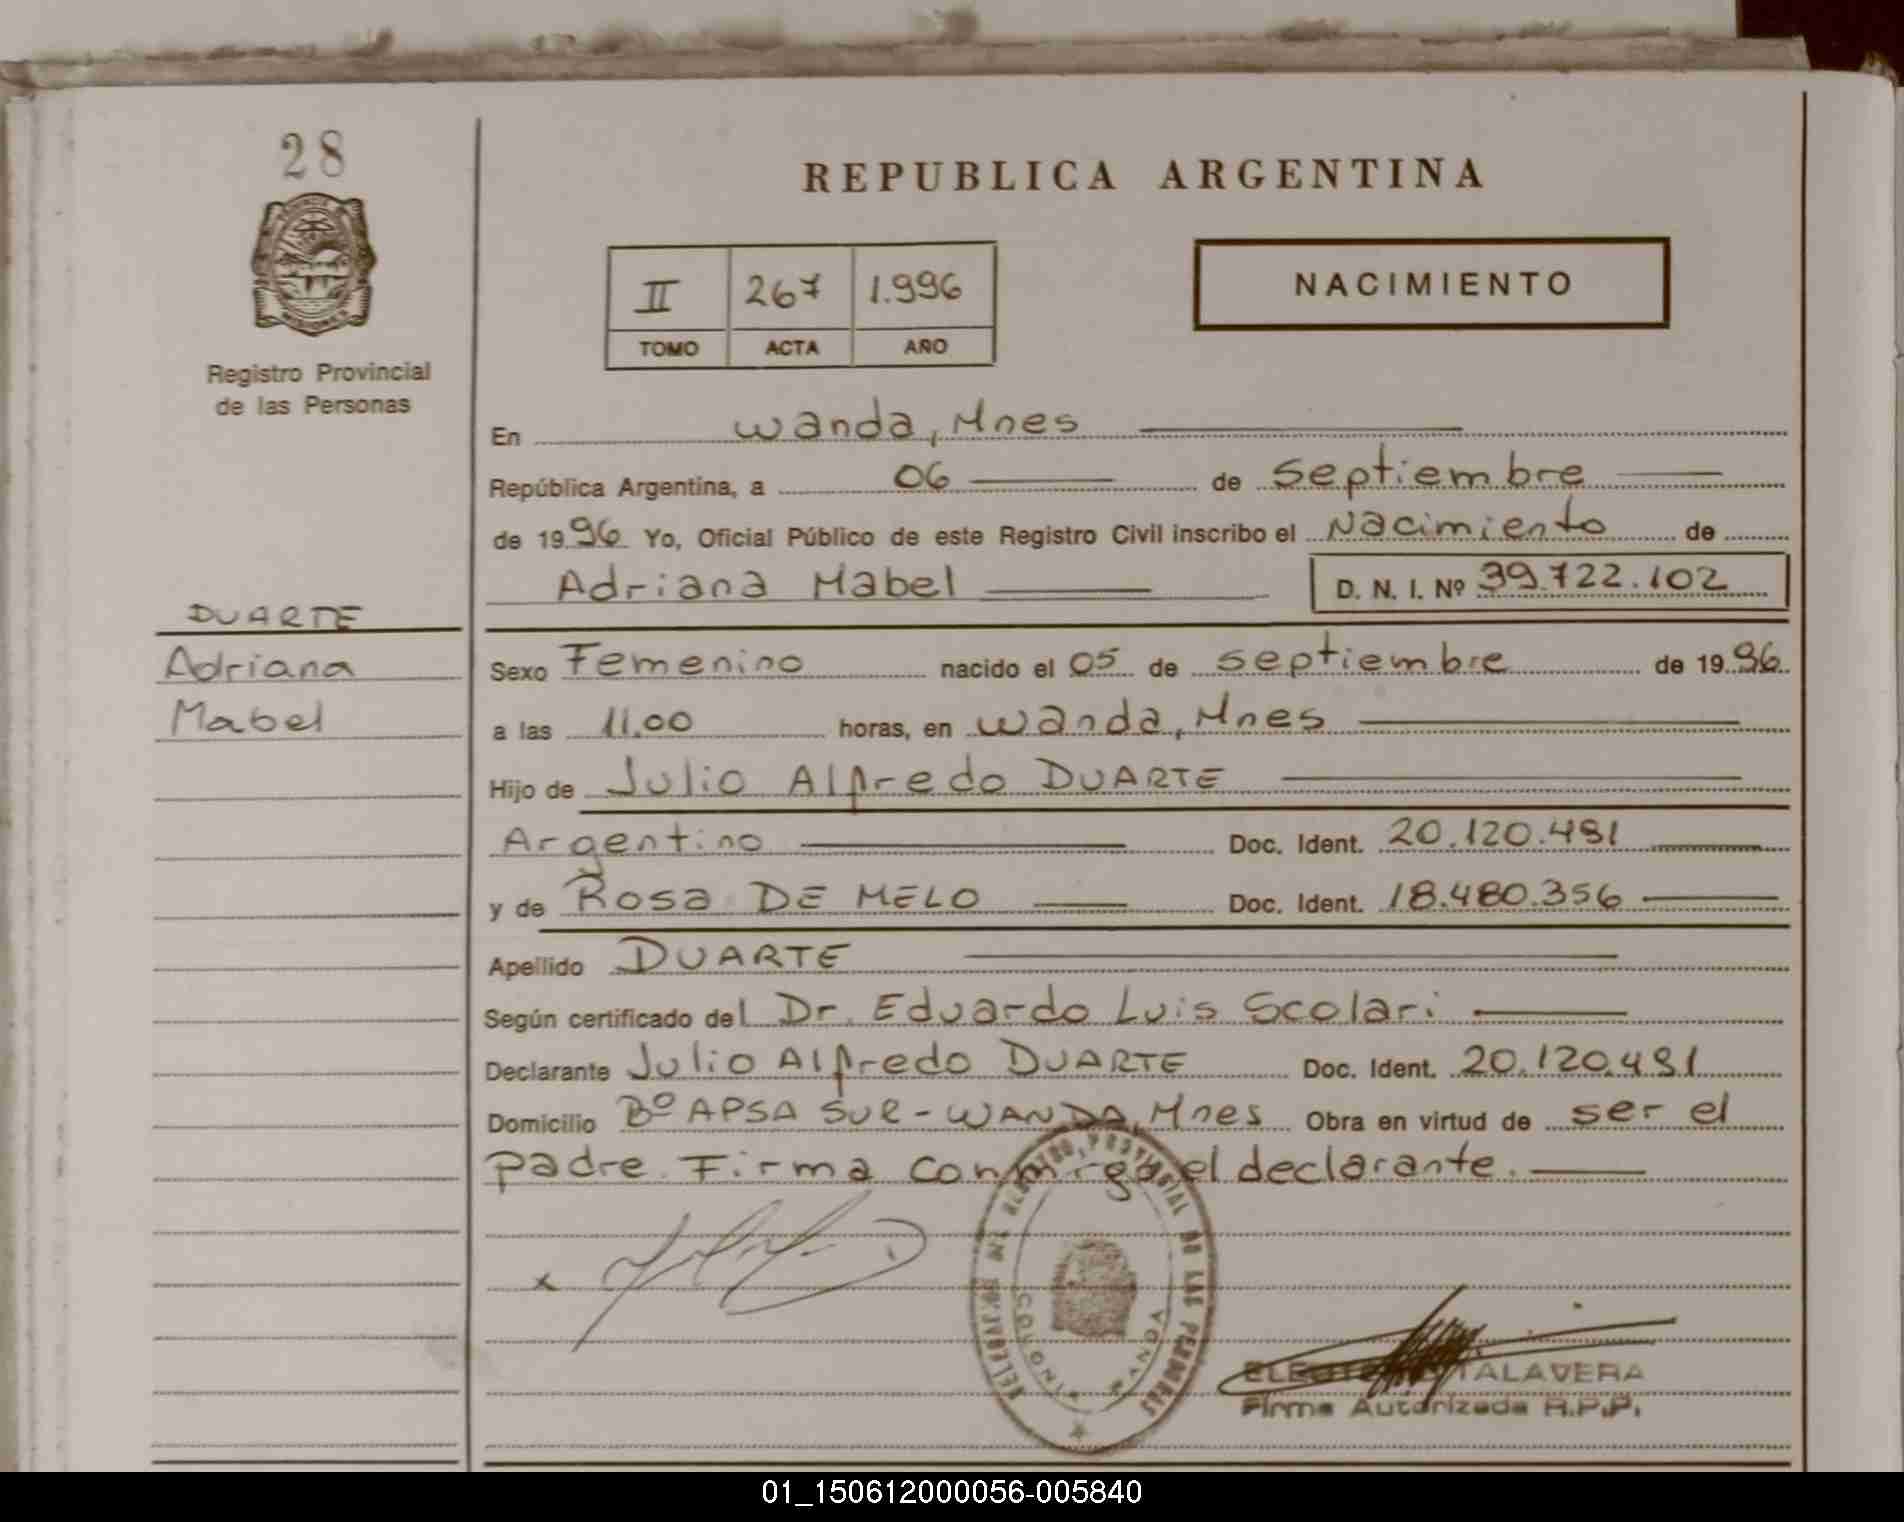 28
REPUBLICA ARGENTINA
PROVINCIA DE
MISIONES
Registro Provincial
de las Personas
II 267 1.996
TOMO ACTA AÑO
NACIMIENTO
En Wanda, Mnes
República Argentina, a 06 de Septiembre
de 1996 Yo, Oficial Público de este Registro Civil inscribo el Nacimiento de
Adriana Mabel D. N. I. Nº 39.722.102
DUARTE
Adriana
Mabel
Sexo Femenino nacido el 05 de septiembre de 1996.
a las 11.00 horas, en Wanda, Mnes
Hijo de Julio Alfredo DUARTE
Argentino Doc. Ident. 20.120.491
y de Rosa DE MELO Doc. Ident. 18.480.356
Apellido DUARTE
Según certificado del Dr. Eduardo Luis Scolari
Declarante Julio Alfredo DUARTE Doc. Ident. 20.120.491
Domicilio Bº APSA SUR - WANDA, Mnes Obra en virtud de ser el
padre. Firma conmigo el declarante.
x
PROVINCIAL DE LAS PERSONAS
COLONIA WANDA
TALAVERA
Firma Autorizada R.P.P.
01_150612000056-005840